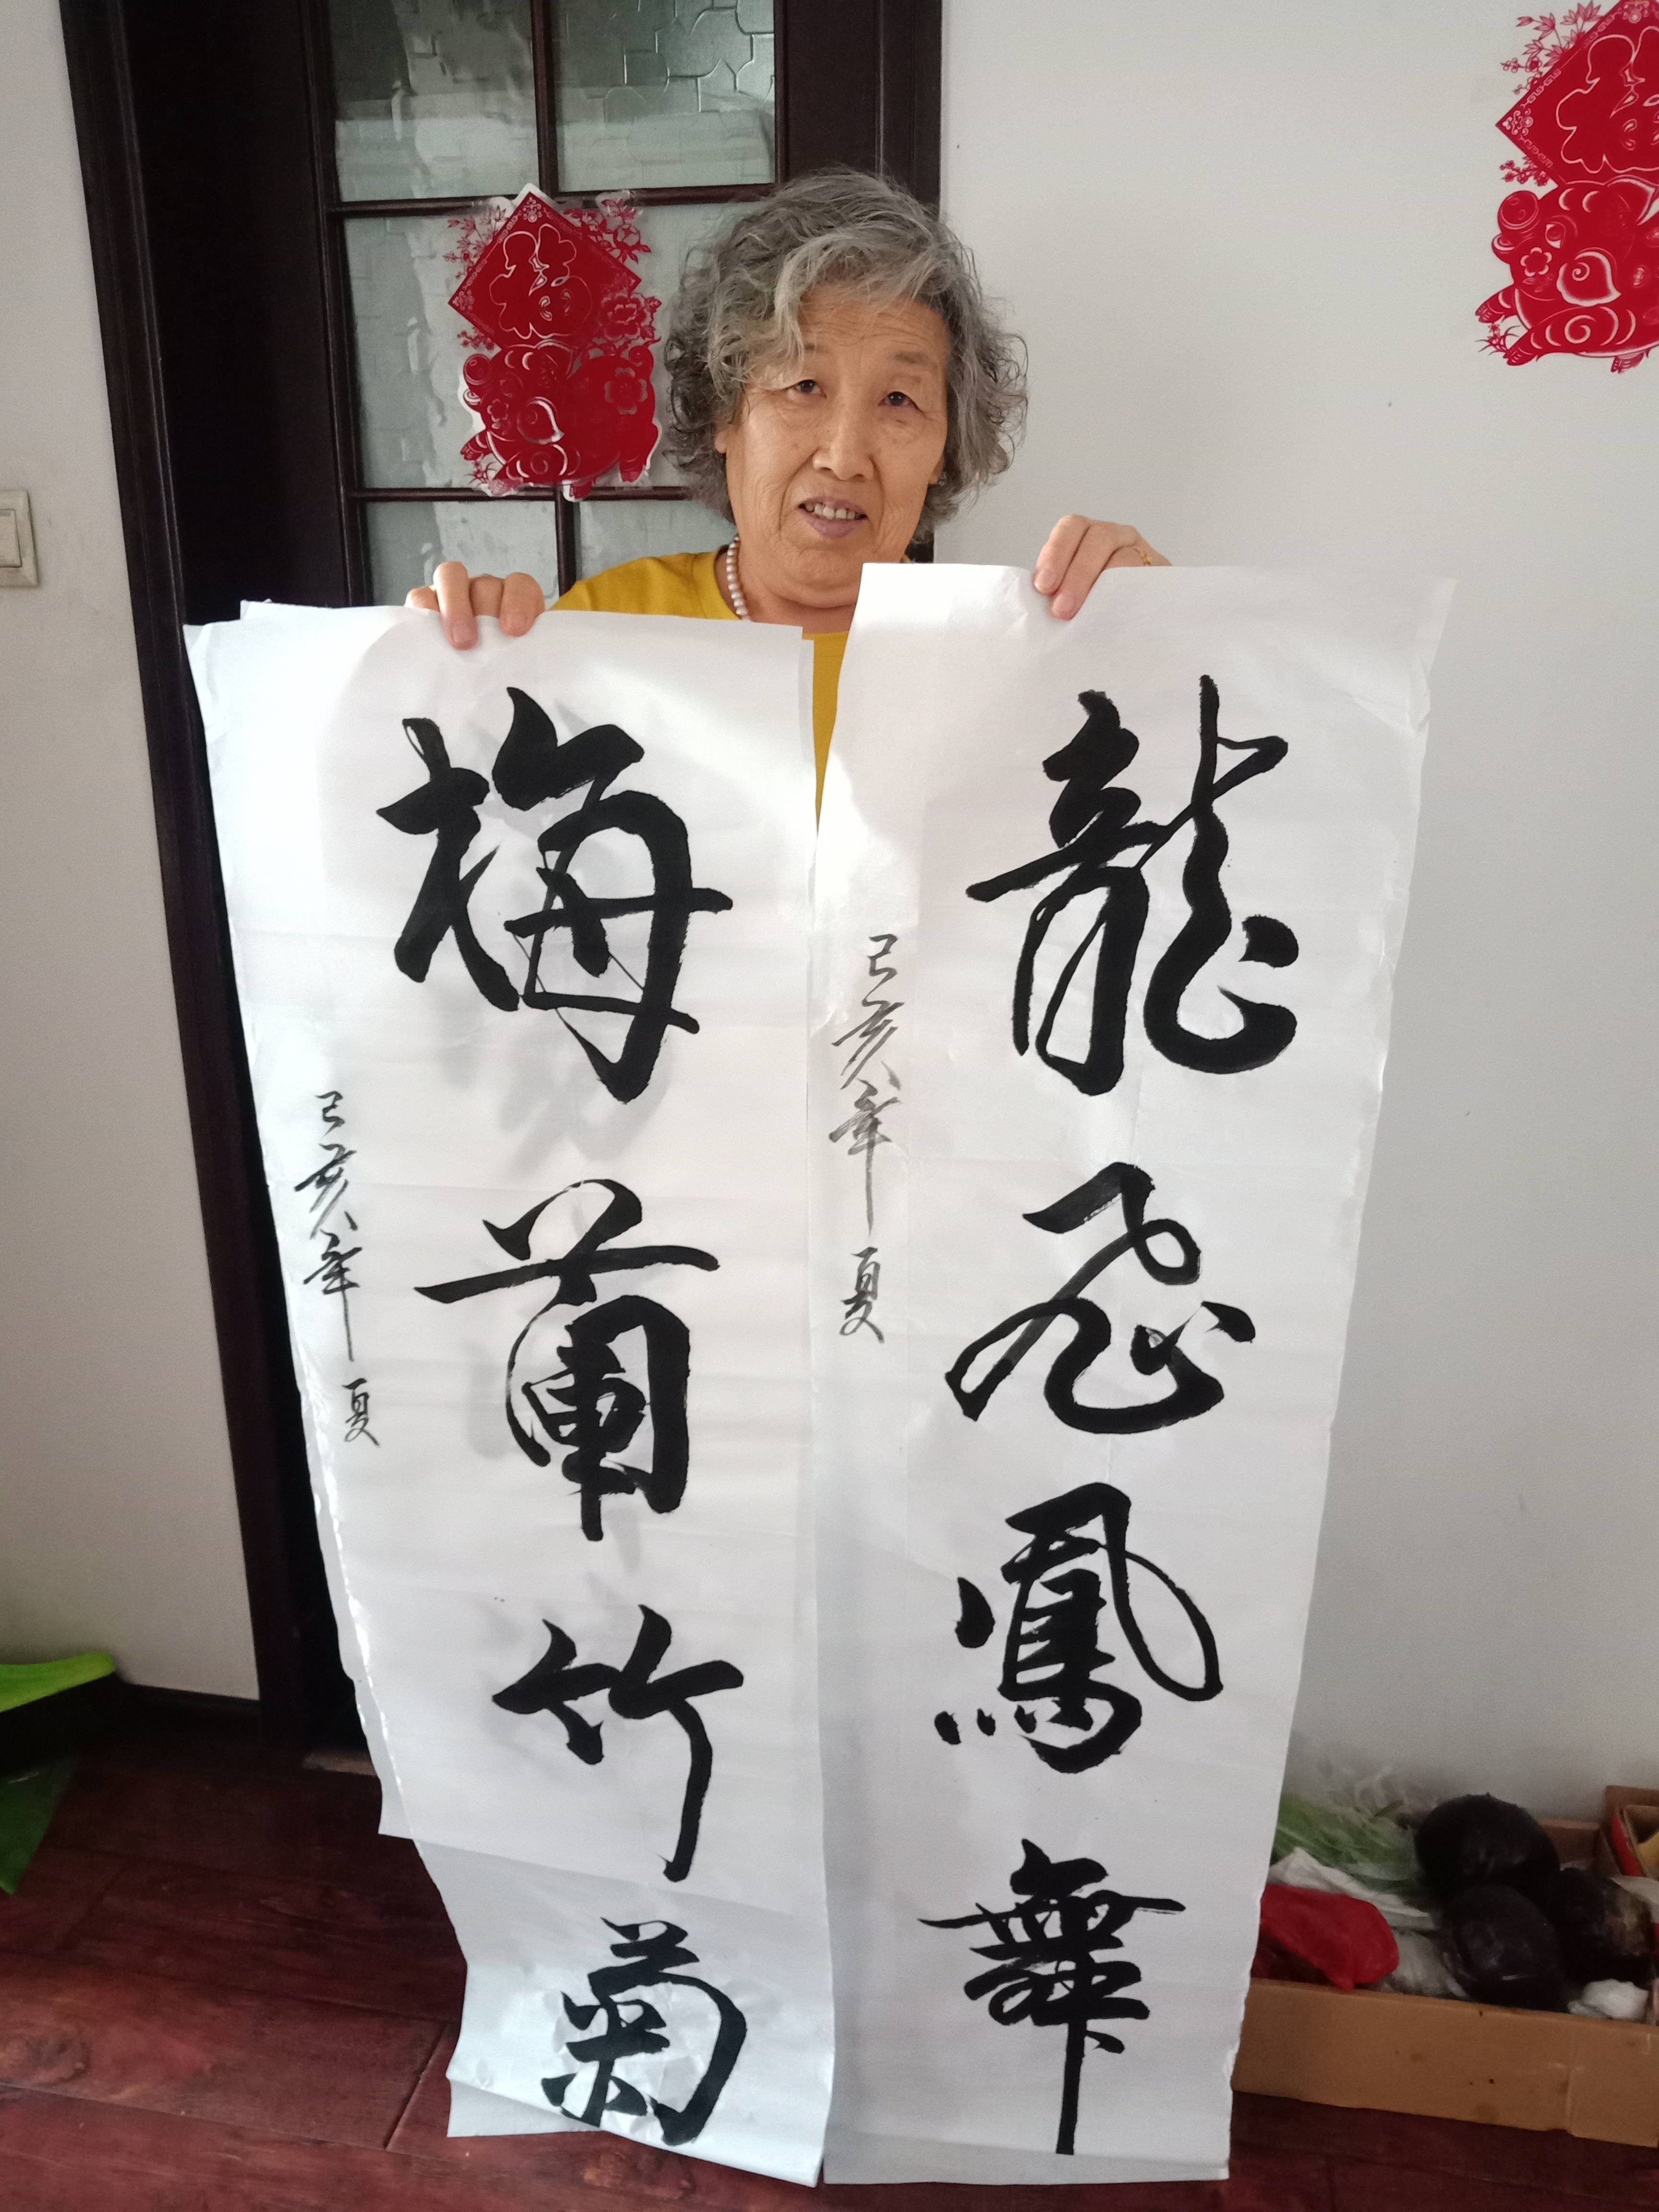 龍飛鳳舞
己亥年夏
梅蘭竹菊
己亥年夏
福
福